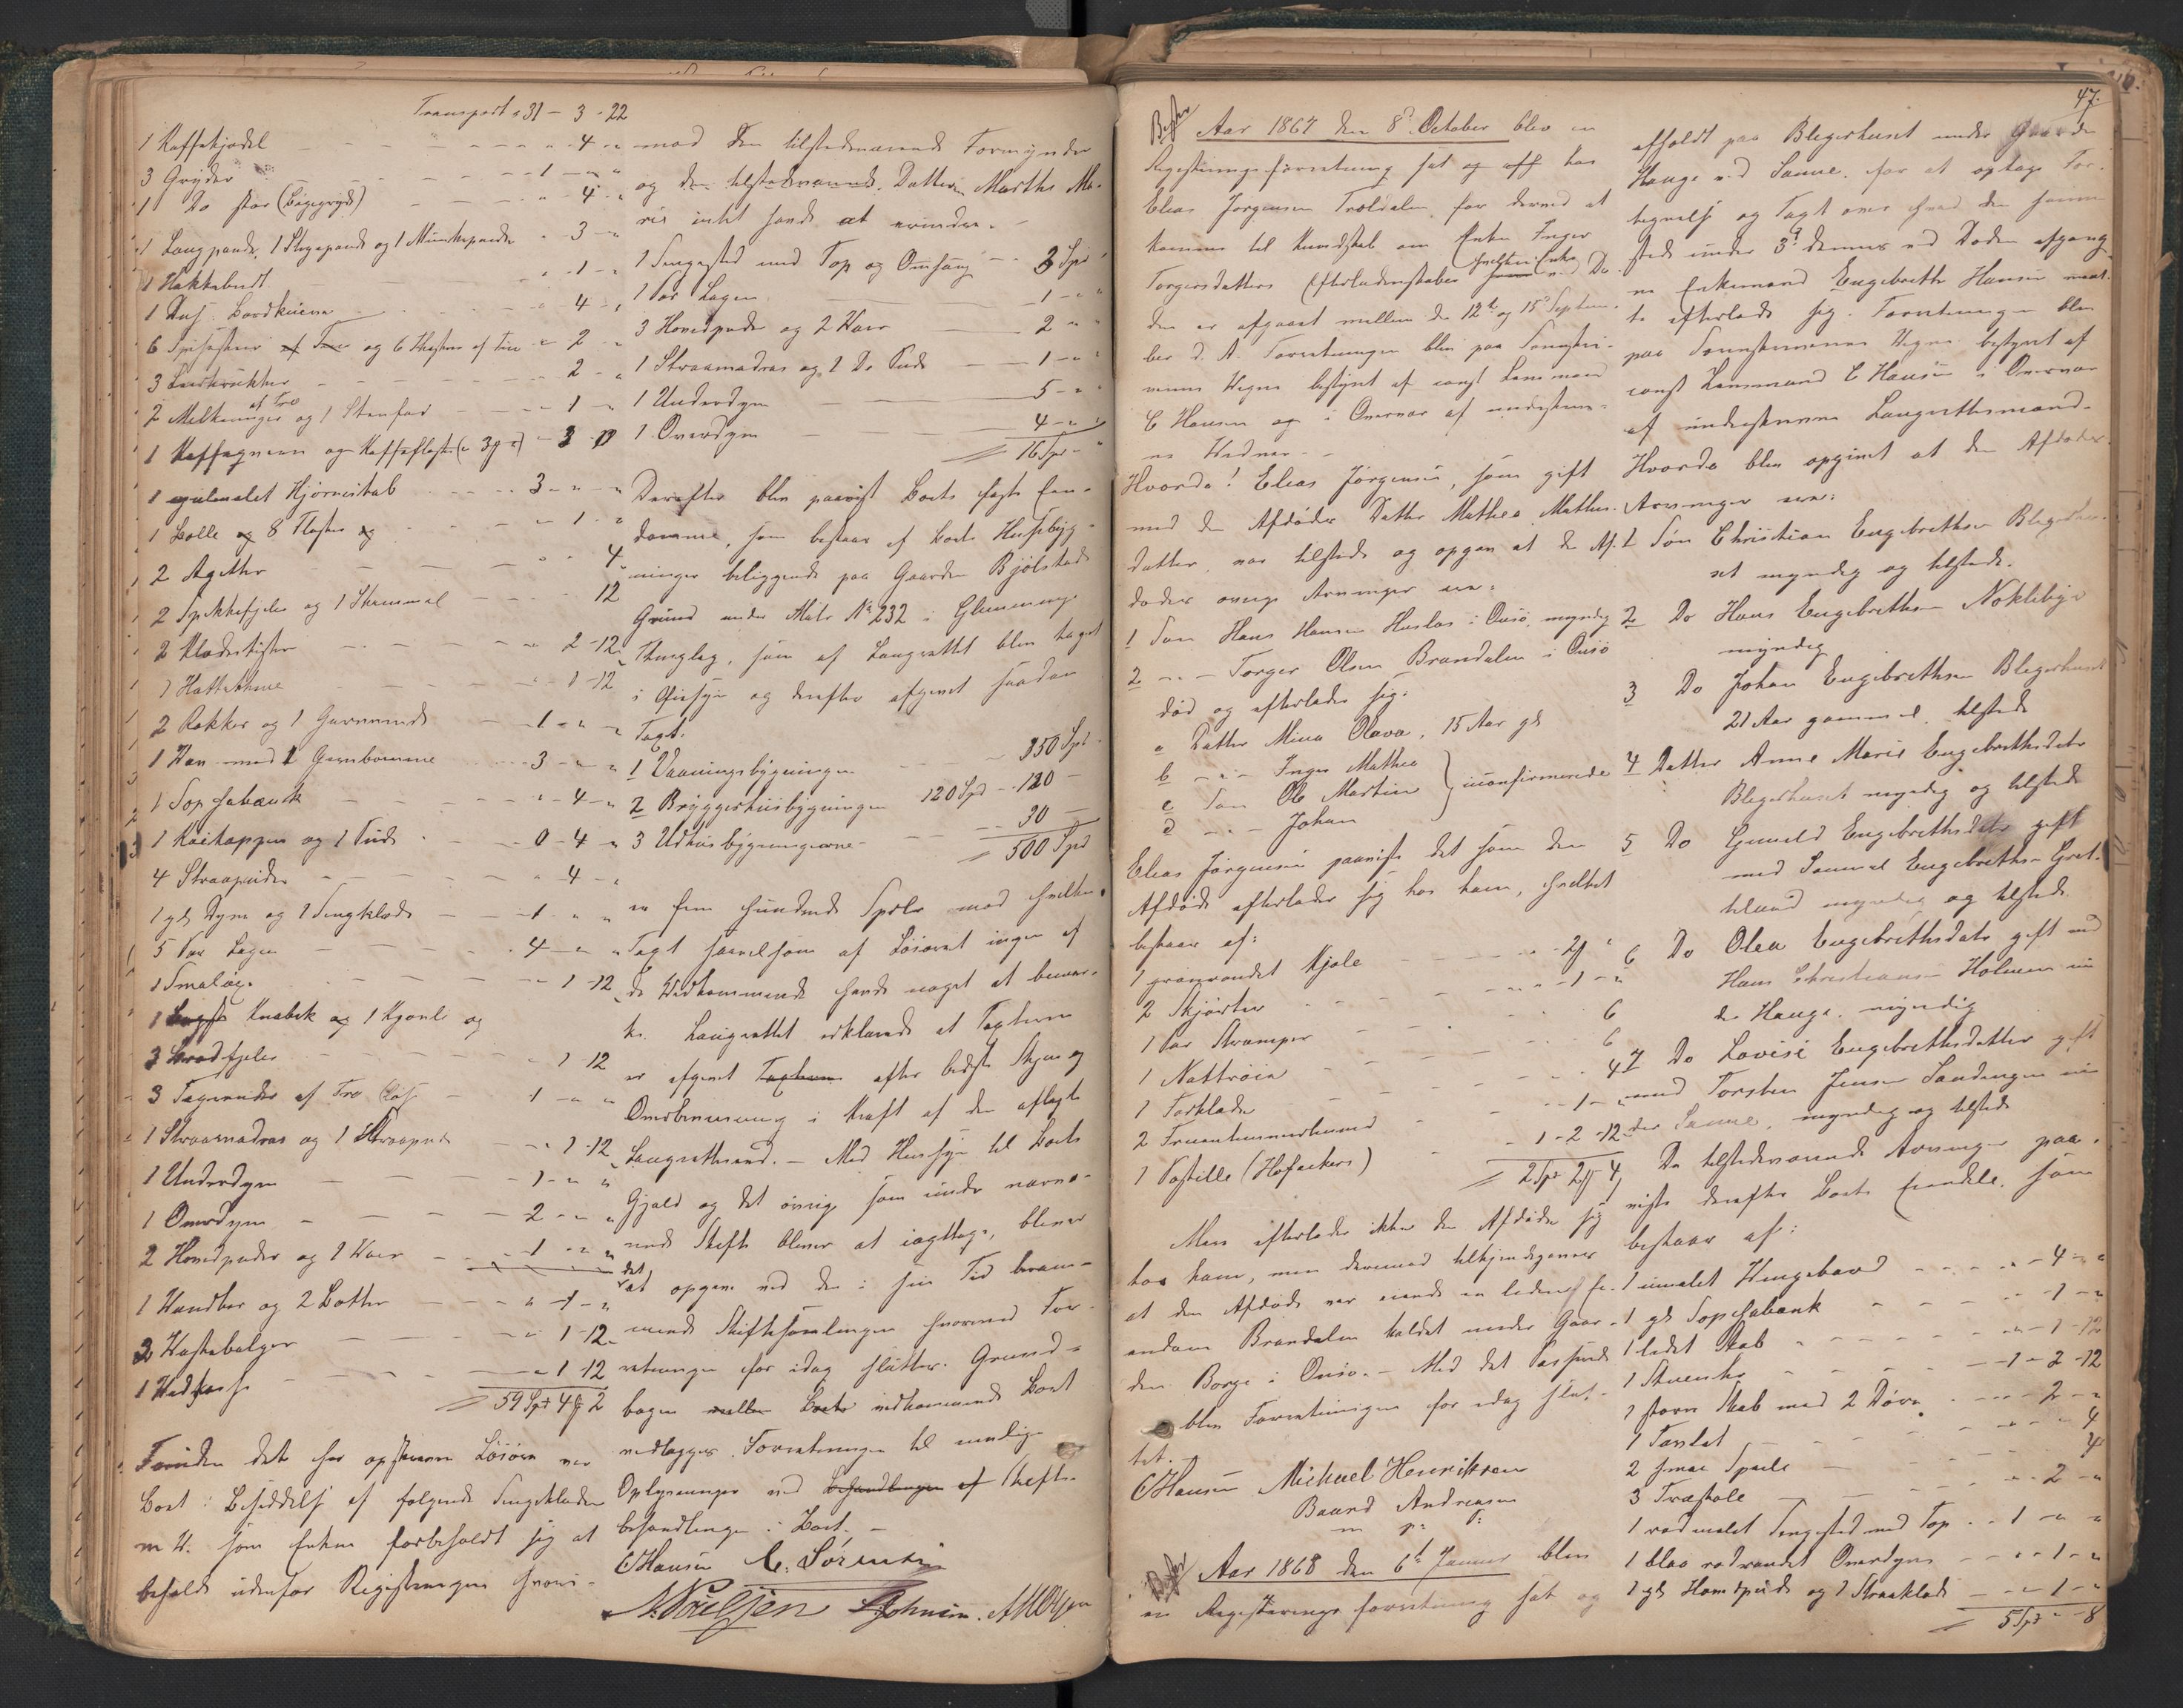 Transport " 31 - 3 - 22
1 Kaffekjedel - - - " 4 "
3 Gryder - - - " 1 - " "
1 Do stor (Bøgegryde) - - " 4 - "
1 Langpande, 1 Stegepande og 1 Munkepande " 3 - "
1 Hakkebret - - " 1 - "
1 Dus. Bordknive - - " 4 - "
6 Spiseskeer og 6 Theskeer af Tin - " 2 - "
3 Leerkrukker - - 2 - "
2 Melkeringer af Træ og 1 Stenfad - - 1 - "
1 Kaffegværn og Kaffeflaske
1 gulmalet Hjørneskab - - 3 - " - "
1 Bolle og 8 Flasker og - - " 1 - "
2 Agetter - - " 4
2 Spekkefjeler og 1 Skammel - - 12
2 Klædeskister - - " 2 - 12
1 Hatteskrue - - " 1 - 12
2 Rokker og 1 Garnvinde - 1 - " -
1 Væv med 1 Garnbomme - 3 - " - "
1 Sophabænk - - " - 4 - "
1 Kaikappe og 1 Pude - 0 - 4 - "
4 Straapuder - - " 4 - "
1 gl Dyne og 1 Sengklæde - 1 " "
5 Par Lagen - - 4 - "
1 Smaløg - - 1 - 12
1 Knabek og 1 Kjørel og
3 Brødfjeler - - " 1 12
3 af Træ - 1 - " "
1 Straamadras og 1 Straapude - " 1 12
1 Underdyne - - 1 - " "
1 Overdyne - - 2 - " "
2 Hovedpuder og 1 Vaar - - 1 - " "
1 Vandbær og 2 Bøtter - - " 1 - "
2 Vaskebaljer - - " 1 12
1 Vedkasse - - " 1 12
59 Spd 4 ß 2
Foruden det her opskrevne Løsøre var
Boet i Besiddelse af følgende Sengeklæder
m. V. som Enken forbeholdt sig at
beholde udenfor Registreringen hvori-
mod den tilstedeværende Formynder
og den tilstedeværende Datter Marthe Ma-
rie intet havde at erindre.
1 Sengested med Top og Omhæng - 3 Spd
1 Par Lagen - 1 - "
3 Hovedpuder og 2 Vaar - 2 " "
1 Straamadras og 1 Do Pude - 1 - "
1 Underdyne - 5 - "
1 Overdyne - 4 - "
16 Spd - "
Derefter blev paavist Boets faste Ein-
domme, som bestaar af Boets Husebyg-
ninger beliggende paa Gaarden Bjølstads
Grund under Matr No 232 i Glemminge
Thinglag, som af Laugrettet blev taget
i Øiesyn og derefter afgivet saadan
Taxt:
1 Vaaningsbygningen - - 350 Spd
2 Bryggerhusbygningen 120 Spd - 120 -
3 Udhusbygningerne - - 30 -
500 Spd
er fem hundrede Spdlr mod hvilken
Taxt saavelsom af Løsøret ingen af
de Vedkommende havde noget at bemær-
ke. Laugrettet erklærede at Taxterne
er afgivet Taxterne efter bedste Skjøn og
Overbeviisning i Kraft af den aflagte
Laugrettesed. - Med Hensyn til Boets
Gjæld og det øvrige som under nærvæ-
rende Skifte bliver at iagttage, bliver
det at opgive ved den i sin Tid beram-
mende Skiftesamlingen hvormed For-
retningen for idag slutter. Grund-
bogen Boets vedkommende Boet
vedlægges Forretningen til nærlige
Oplysninger ved Behandlingen af Skifte-
behandlingen i Boet. -
C Hansen C. Sørensen
N. Poulsen A M Olsen
47.
Aar 1867 den 8d October blev en
Registreringsforretning sat og aff hos
Elias Jørgensen Trolldalen for dermed at
komme til Kundskab om Enken Inger
Torgersdatters Efterladenskaber hvilken Enke ved Dø-
den er afgaaet mellem de 12te og 15d Septem-
ber d. A. Forretningen blev paa Sorenskri-
verens Vegne bestyret af const Lensmand
C Hansen og i Overvær af undertegne-
ne Vidner. -
Hvorda! Elias Jørgensen, som gift
med den Afdødes Datter Mathea Mathis-
datter, var tilstede og opgav at den Af-
dødes øvrige Arvinger er:
1 Søn Hans Hansen Huslos i Onsø, myndig
2 - " - Torger Olsen Brondalen i Onsø
død og efterlader sig:
a Datter Mina Olava, 15 Aar gl
b - " - Inger Mathea
c Søn Ole Martin } uconfirmerede
d - " - Johan
Elias Jørgensen paaviste det som den
Afdøde efterlader sig hos ham, hvilket
bestaar af:
1 grønrandet Kjole - - - " 2 ß "
2 Skjørter - - - " - 1 - "
1 Par Strømper - - 6
1 Nattrøie - - 6
1 Forklæde - - 4
2 Fruentimmerhuved - - 1 -
1 Postille (Hofackers) - 1 - 2 - 12
2 Spd 2 ß 4
Mere efterlader ikke den Afdøde sig
hos ham, men derimod tilkjendegiver
at den Afdøde var eiende en liden Ei-
endom Brondalen kaldet under Gaar-
den Borge i Onsø. - Med det Passerede
blev Forretningen for idag slut-
tet. -
C Hansen Michael Henriksen
Baard Andreasen
m p: P:
Aar 1868 den 6te Januar blev
en Registerings forretning sat og
affholdt paa Blegerhuset under Gaarden
Hauge ved Sanne for at optage For-
tegnelse og Taxt over hvad den samme
sted under 3d dennes ved Døden afgang-
ne Enkemand Engebreth Hansen maat-
te efterlade sig. Forretningen blev
paa Sorenskriverens Vegne bestyret af
const Lensmand C Hansen i Overvær
af undertegnede Laugrettesmænd.
Hvorda blev opgivet at den Afdødes
Arvinger er:
1 Søn Christian Engebrethsen Blegerhu-
set myndig og tilstede.
2 Do Hans Engebrethsen Noklebye
myndig
3 Do Johan Engebrethsen Blegerhuset
21 Aar gammel. tilstede
4 Datter Anne Marie Engebrethsdatr
Blegerhuset myndig og tilstede
5 Do Gunild Engebrethsdatr gift
med Samuel Engebrethsen Grøt-
teland myndig og tilstede.
6 Do Olea Engebrethsdatr gift med
Hans Christiansen Holmen un
der Hauge. myndig
7 Do Lovise Engebrethsdatter gift
med Torsten Jensen Sandengen un
der Sanne, myndig og tilstede
De tilstedeværende Arvinger paa-
viste derefter Boets Eiendele. som
bestaar af:
1 umalet Hængebord - - - " - 4 - "
1 gl Sophabænk - - - " - 1 - "
1 lidet Skab - - - " - 1 - 12
1 Stueuhr - - - 1 - 2 - 12
1 større Skab med 2 Døre - - - 2 - "
1 Forlæt - - - " - 4
2 smaa Speile - - 4
3 Træstole - - " 2 - "
1 rødmalet Sengested med Top - - 1 - " - "
1 blaa rødrandet Overdyne - - - 1 - "
1 gl Hovedpude og 1 Straaklæde - - 1 - "
5 Spd " - 8